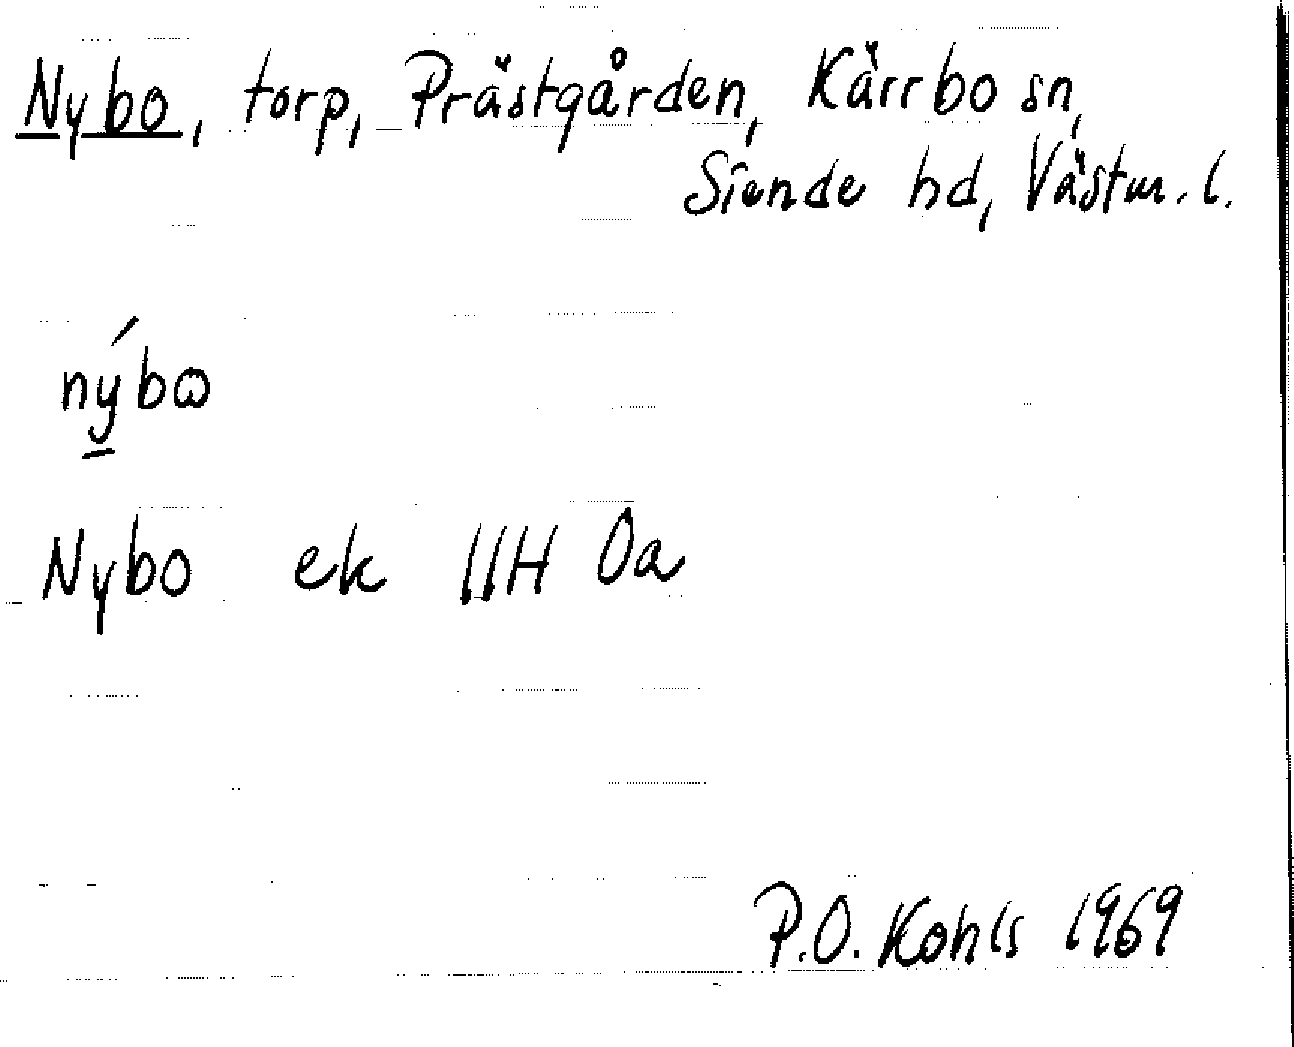 Nybo, torp, Prästgården, Kärrbo sn,
Siende hd, Västm. l.
nýbω
Nybo ek 11H 0a
P.O. Kohls 1969